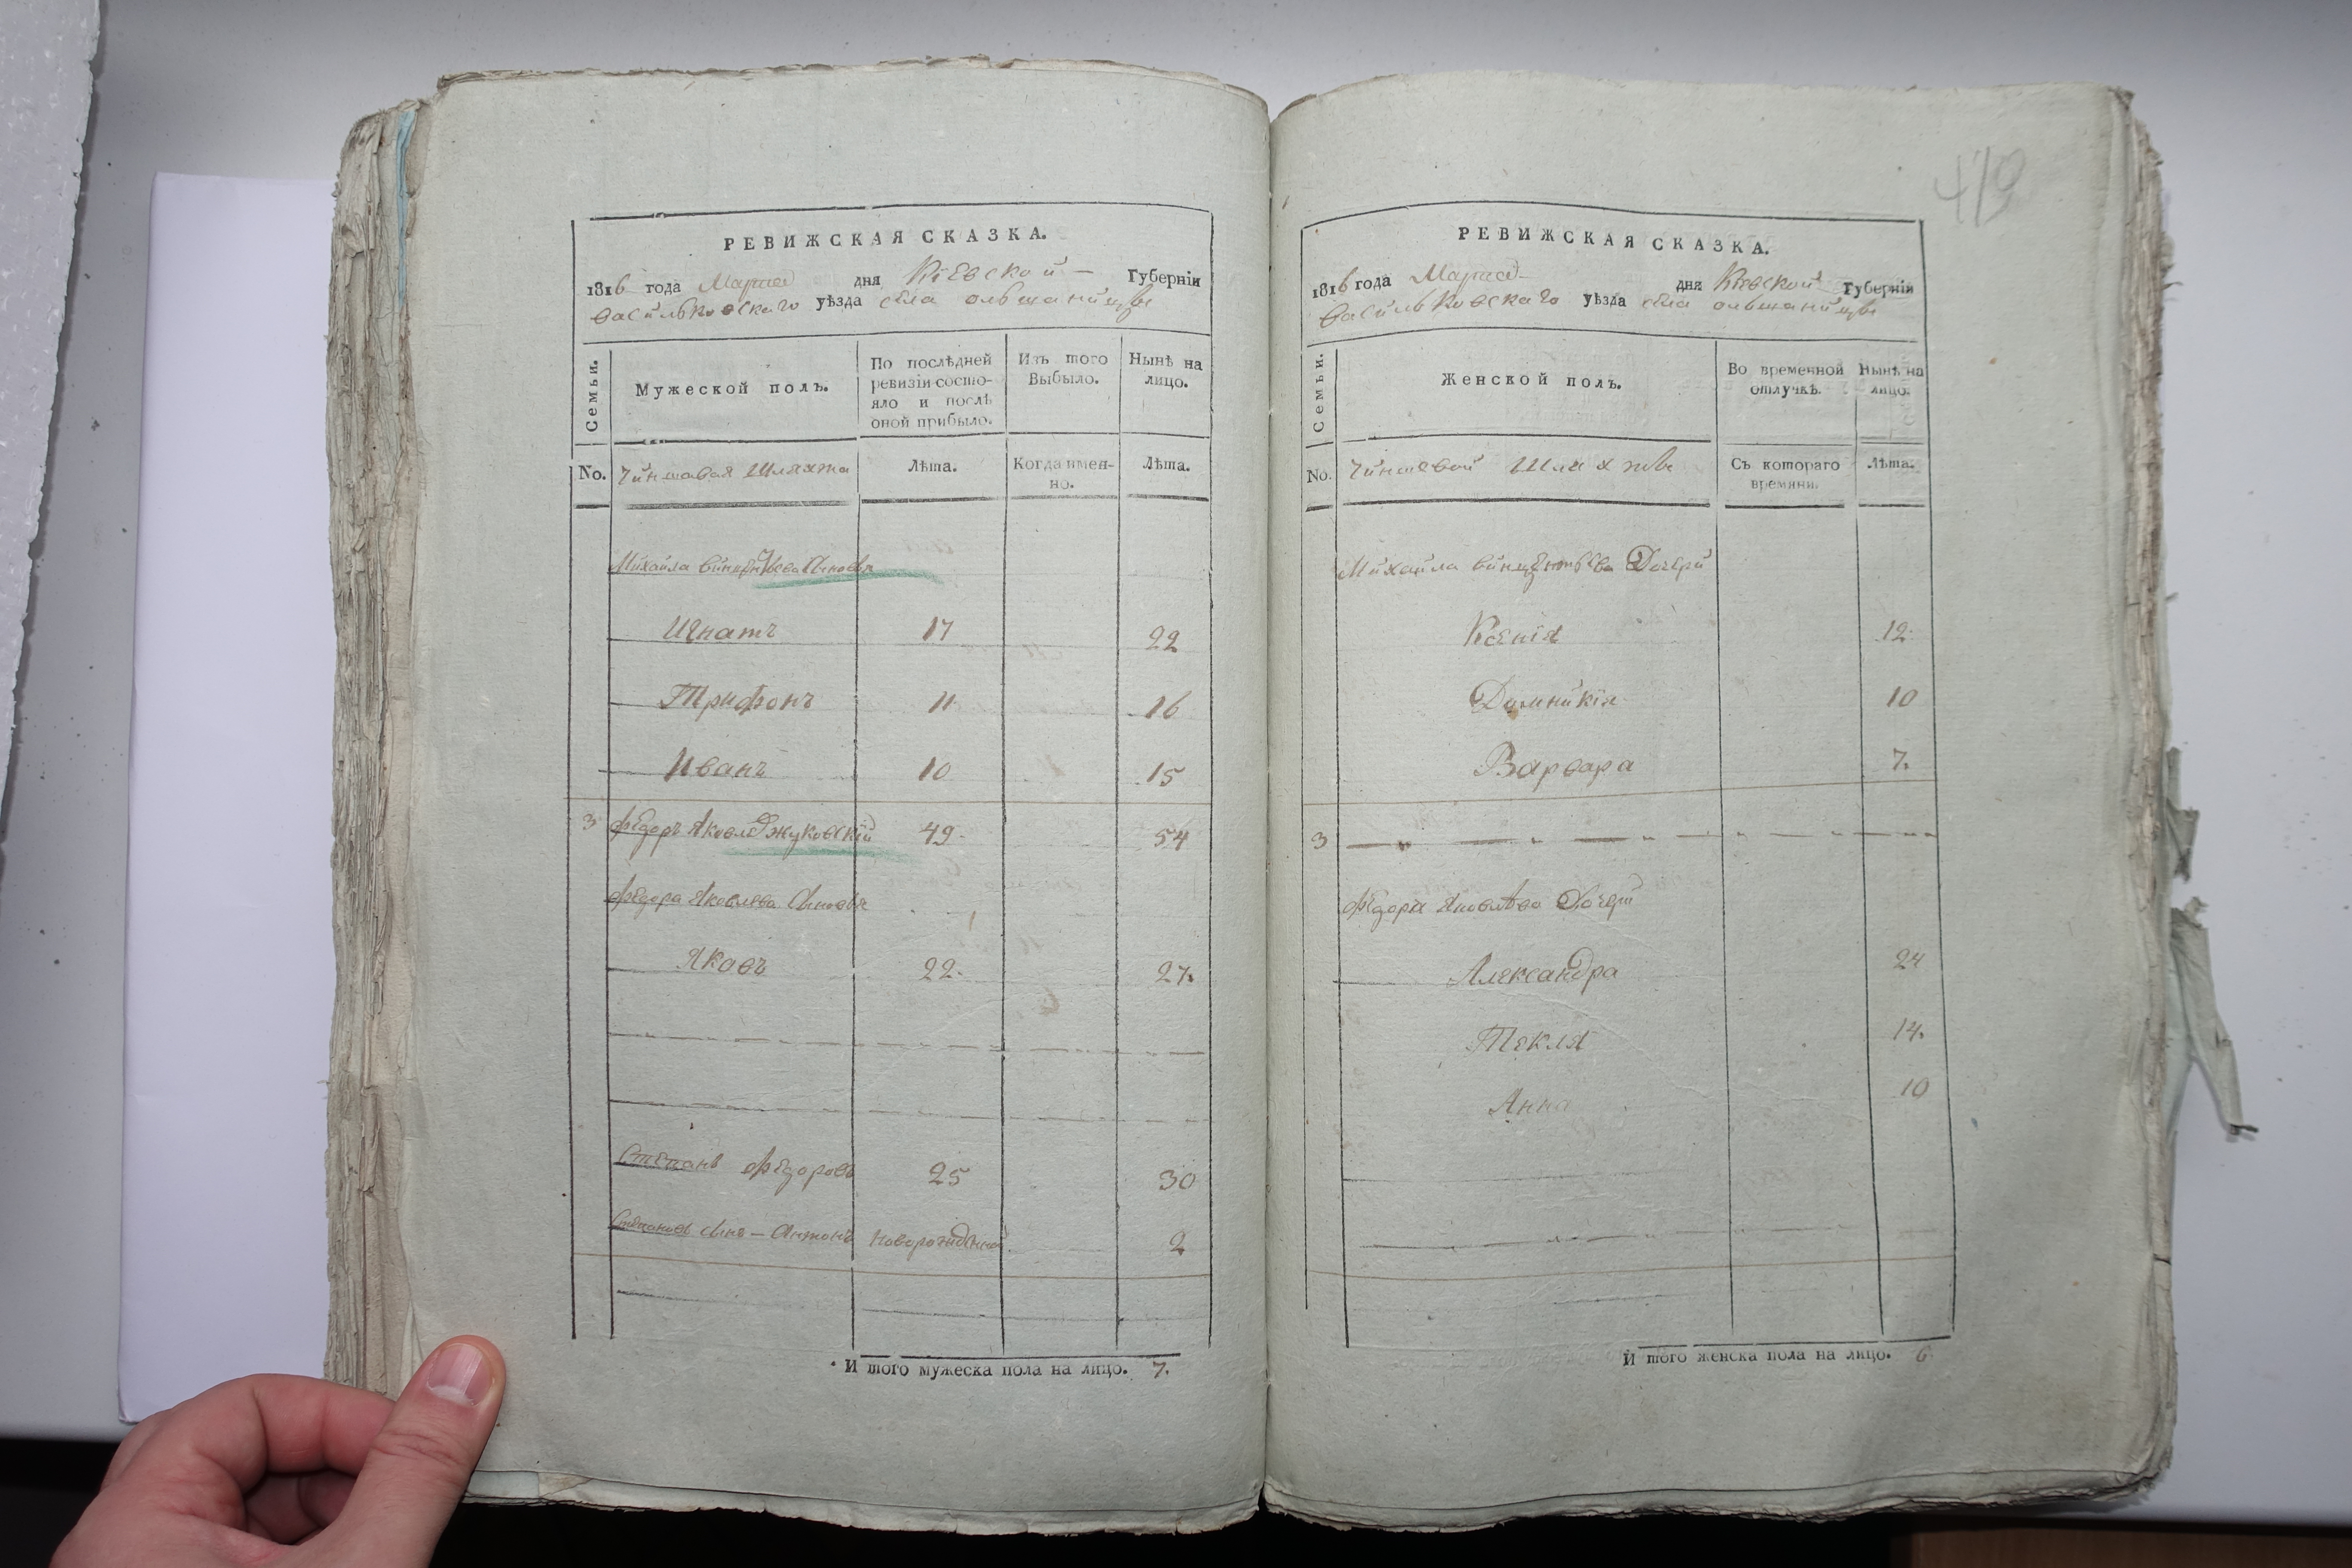 РЕВИЖСКАЯ СКАЗКА.
1816 года Марта дня Кіевской Губерніи
Васильковскаго уѣзда села ольшаницы
Семьи.
Мужеской полъ.
По послѣдней ревизіи состо-
яло и послѣ
оной прибыло.
Изъ того
Выбыло.
Нынѣ на
лицо.
No.
Чиншовая Шляхта
Лѣта.
Когда имен-
но.
Лѣта.
Михайла винцентьева сыновья
Игнатъ 17 22
Трифонъ 11 16
Иванъ 10 15
3 Федоръ Яковл Жуковскій 49 54
Федора Яковлева сыновья
Яковъ 22. 27.
Степанъ Федоровъ 25 30
Степановъ сынъ - Антонъ новорожденной 2
И того мужеска пола на лицо. 7.
419
РЕВИЖСКАЯ СКАЗКА.
1816 года Марта дня Кіевской Губерніи
Васильковскаго уѣзда села ольшаницы
Семьи.
Женской полъ.
Во временной
отлучкѣ.
Нынѣ на
лицо.
No.
Чиншевой Шляхты
Съ котораго
времяни.
Лѣта.
Михайла винцентьева Дочери
Ксенія 12
Домникія 10
Варвара 7.
3
Федора Яковлева Дочери
Александра 24
Текля 14.
Анна 10
И того женска пола на лицо. 6